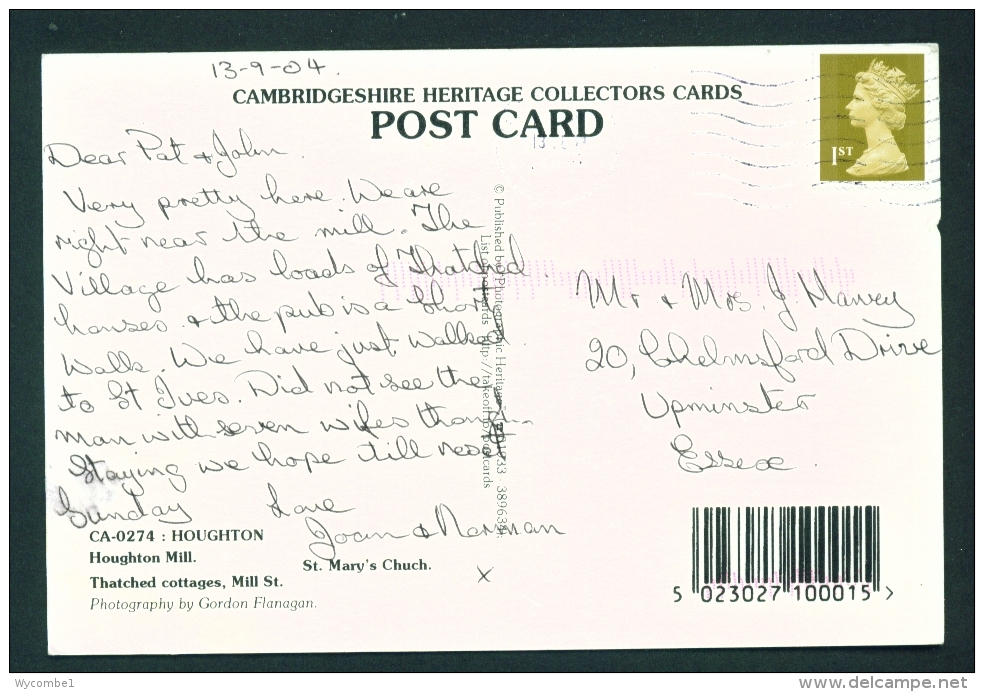 13-9-04.
CAMBRIDGESHIRE HERITAGE COLLECTORS CARDS
POST CARD
1ST
Dear Pat & John.
Very pretty here. We are
right near the mill. The
Village has loads of Thatched
houses. & the pub is a short
Walk. We have just walked
to St Ives. Did not see the
man with seven wifes though.
Staying we hope till next
Sunday Love
Joan & Norman
X
© Published by Photographic Heritage
List of postcards http://takeoff.to/postcards
Mr & Mrs. J. Harvey
20, Chelmsford Drive
Upminster
Essex.
CA-0274 : HOUGHTON
Houghton Mill.
St. Mary's Chuch.
Thatched cottages, Mill St.
Photography by Gordon Flanagan.
5 023027 100015 >
Wycombe1
delcampe.net